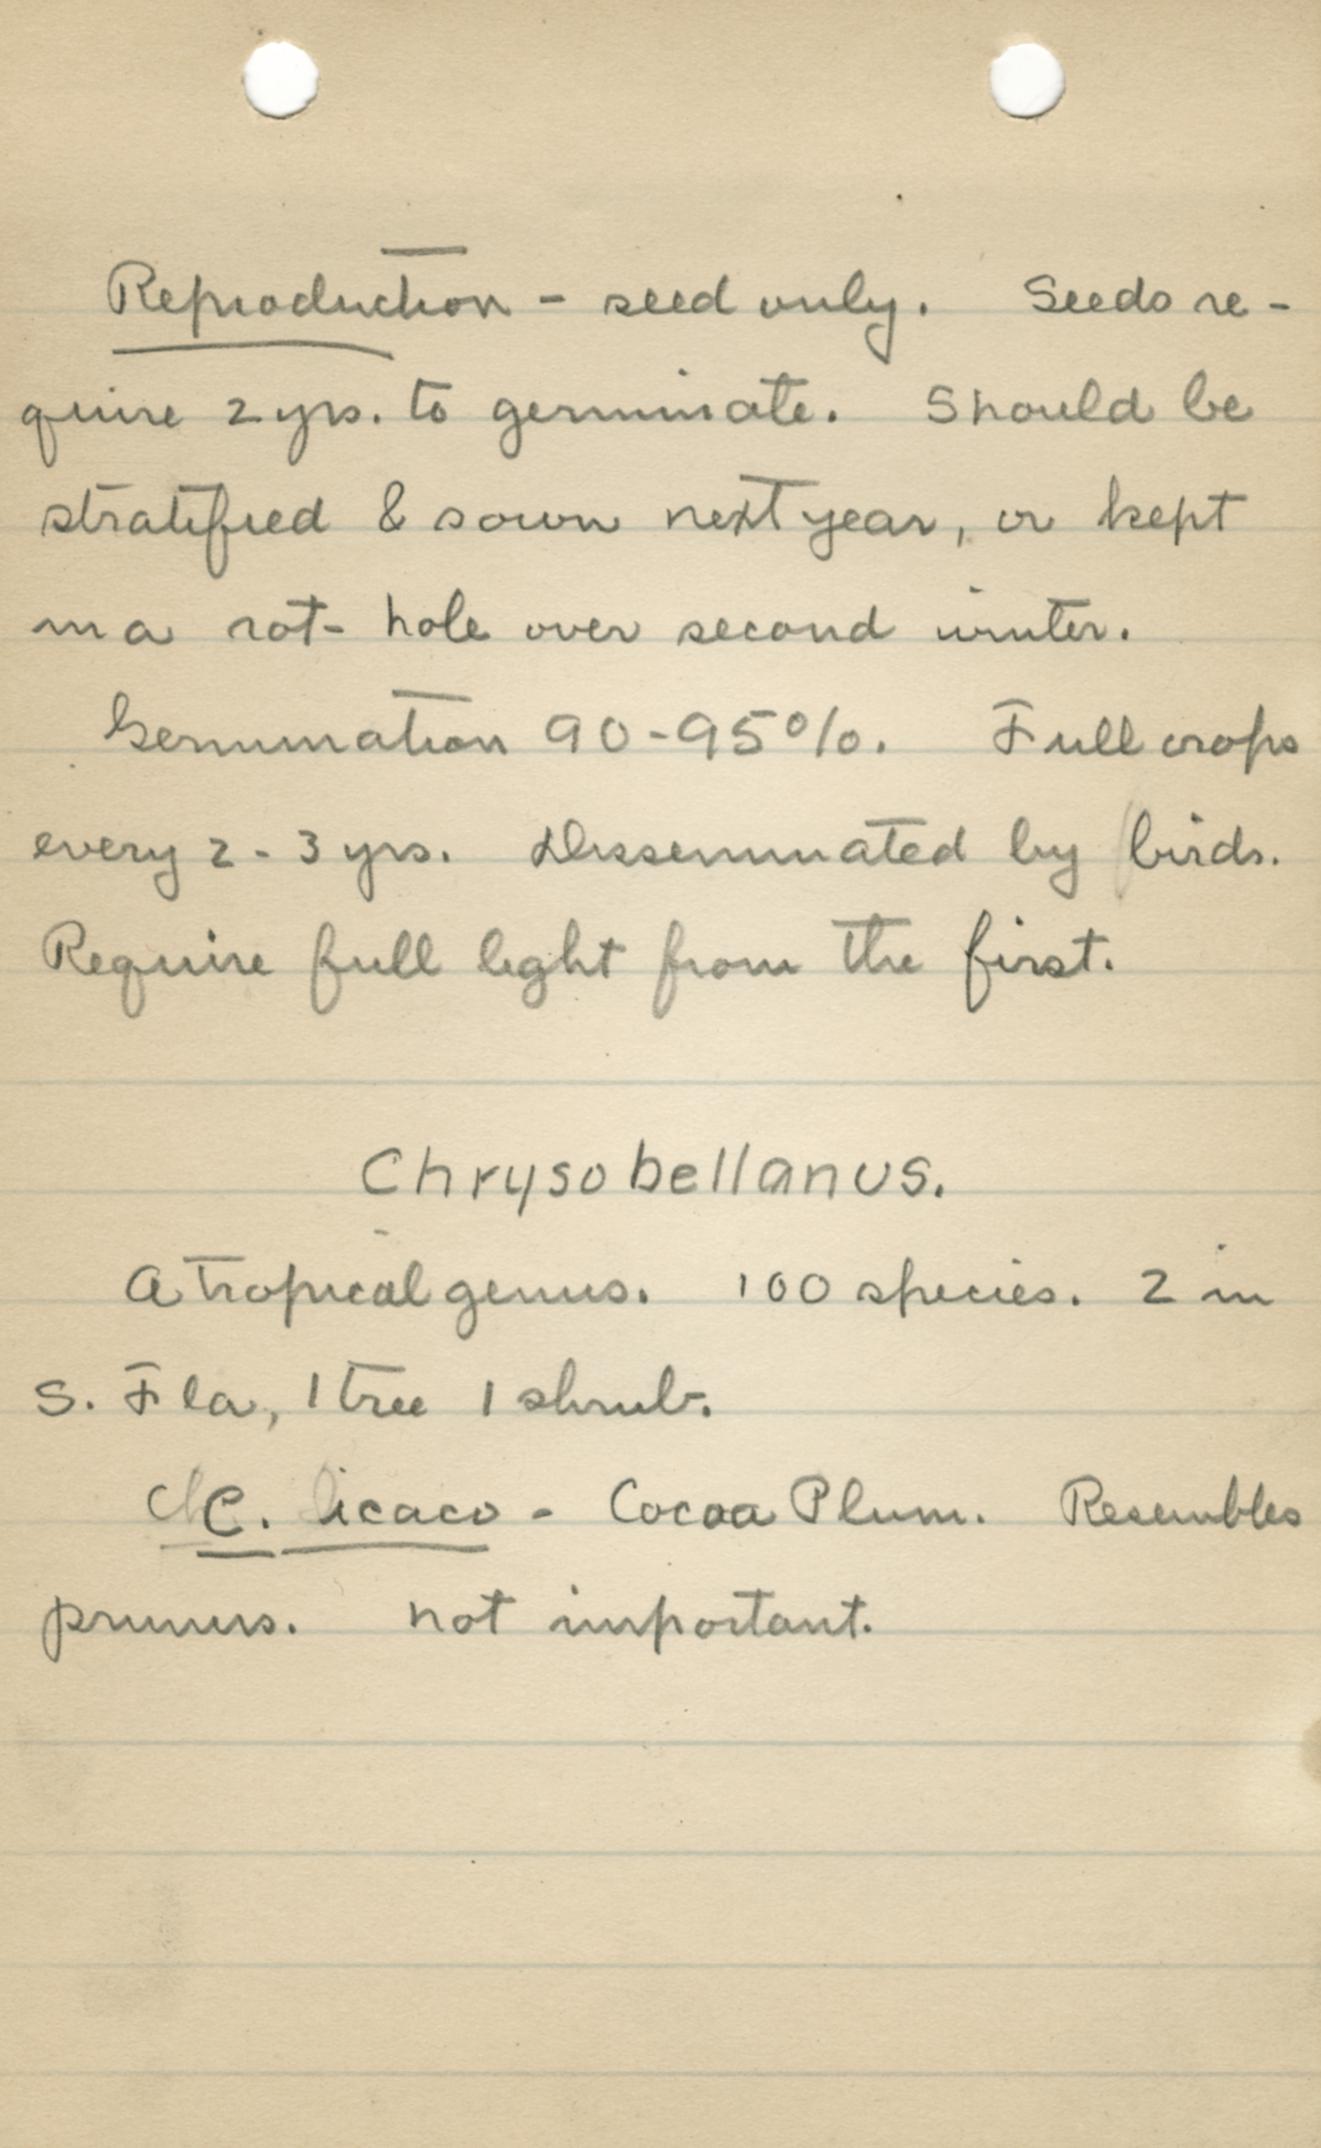 Reproduction - seed only. Seeds re-
quire 2 yrs. to germinate. Should be
stratified & sown next year, or kept
in a rot-hole over second winter.
Germination 90-95%. Full crops
every 2-3 yrs. Disseminated by birds.
Require full light from the first.
Chrysobellanus.
A tropical genus. 100 species. 2 in
S. Fla, 1 tree 1 shrub.
C. icaco - Cocoa Plum. Resembles
prunus. not important.